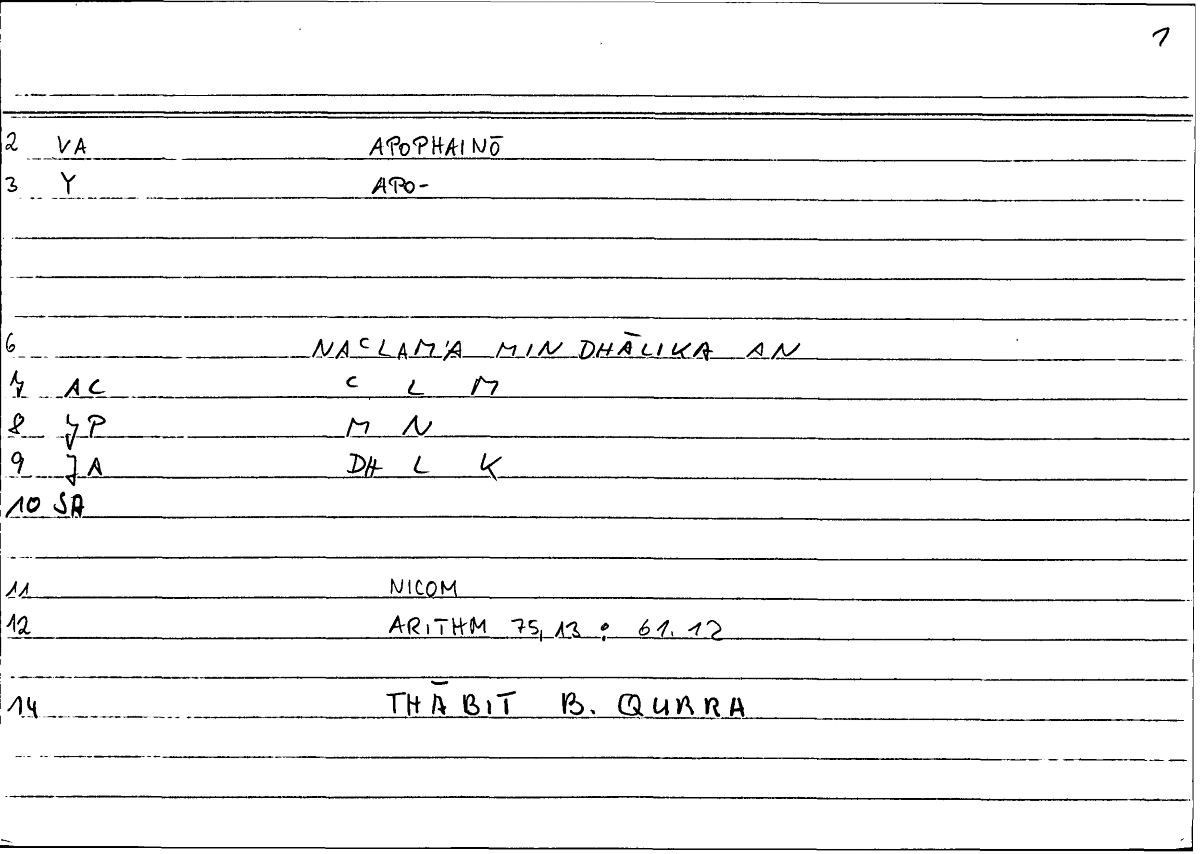 1
2 VA APOPHAINŌ
3 Y APO-
6 NAᶜLAMA MIN DHĀLIKA AN
7 AC ᶜ L M
8 JP M N
9 JA DH L K
10 SA
11 NICOM
12 ARITHM 75,13 : 61.12
14 THĀBIT B. QURRA